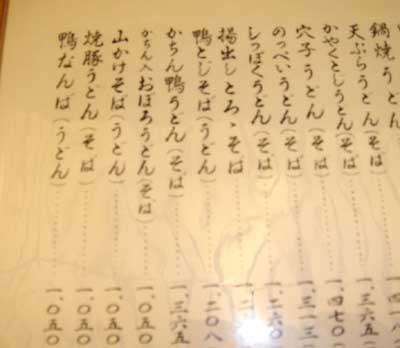 鍋焼うどん
天ぷらうどん(そば)……一、三六五
かやくとじうどん(そば)……一、四七〇
穴子うどん(そば)……一、三一三
のっぺいうどん(そば)……一、二六〇
しっぽくうどん(そば)……一、二
揚出しとろゝそば……一、二
鴨とじそば(うどん)……一、二〇八
かちん鴨うどん(そば)……一、三六五
かちん入おぼろうどん(そば)……一、〇五〇
山かけそば(うどん)……一、〇五〇
焼豚うどん(そば)……一、〇五〇
鴨なんば(うどん)……一、〇五〇